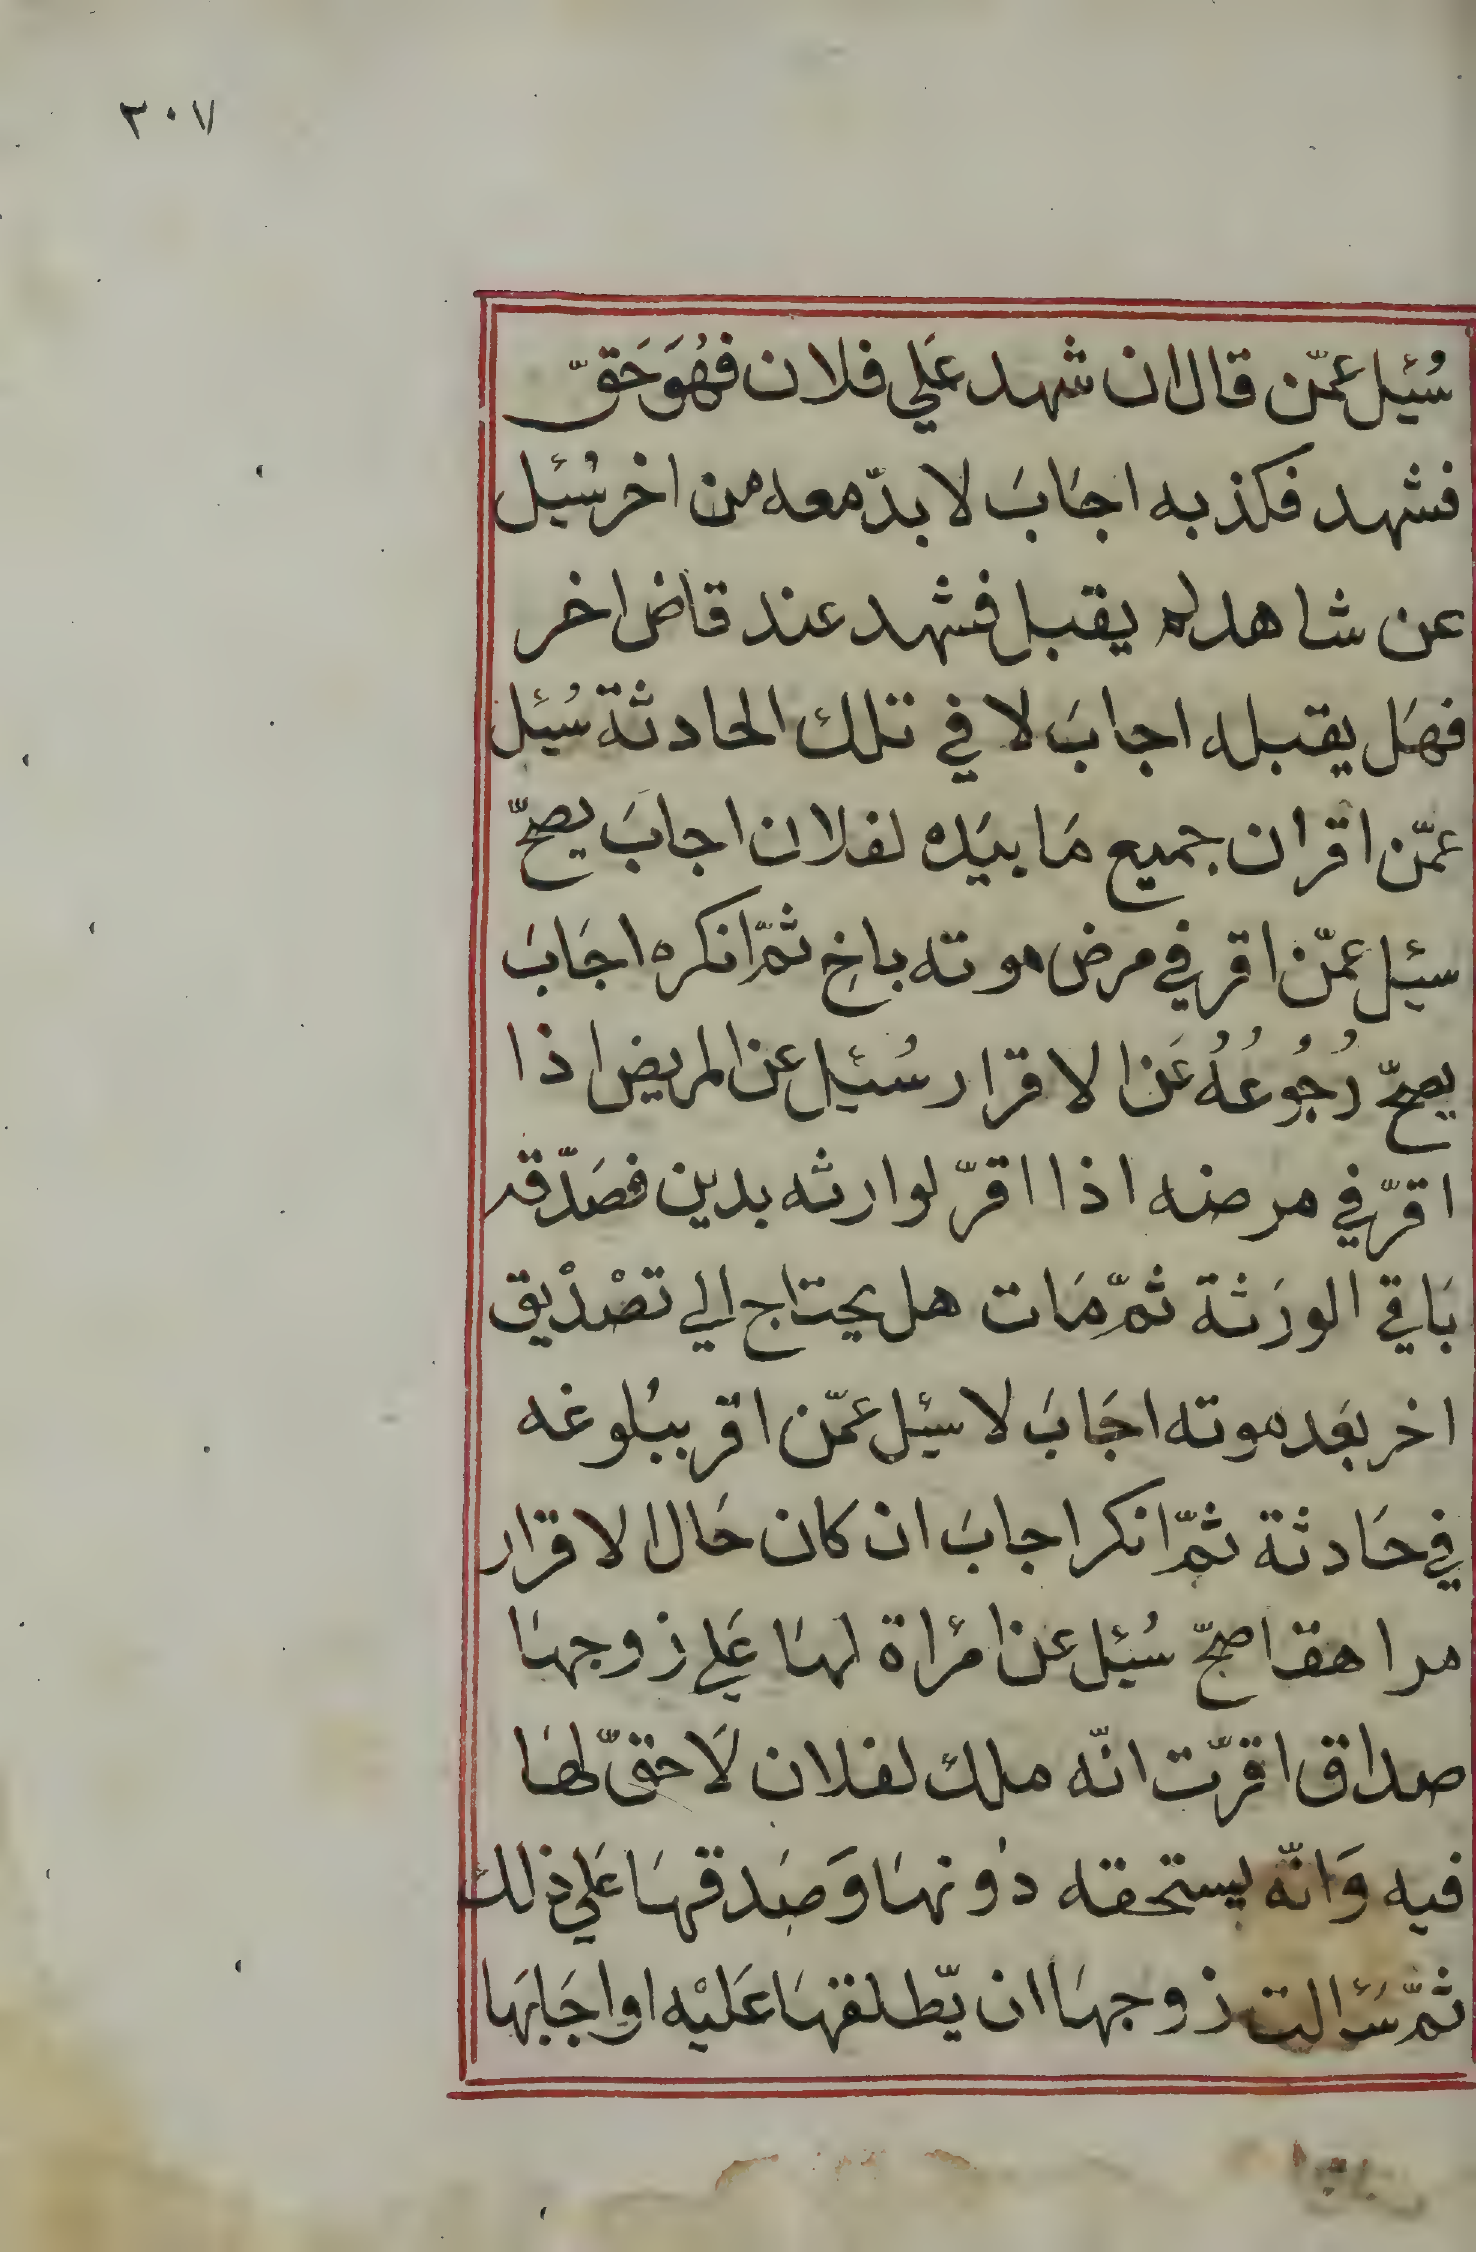 ٣٠٧
سُئِل عمّن قال ان شهد عَلي فلان فهُوَ حَقّ
فشهد فكذبه اجَابَ لا بدّ معه من اخر سُئِل
عن شاهد لم يقبل فشهد عند قاض اخر
فهَل يقبله اجابَ لا في تلك الحادثة سُئِل
عمّن اقر ان جميع مَا بيَده لفلان اجابَ يصحّ
سئِل عمّن اقر في مرض موته باخٍ ثمّ انكره اجَابَ
يصحّ رُجُوعُهُ عَن الاقرار سُئِل عن المريض اذا
اقرّ في مرضه اذا اقرّ لوارثه بدين فصَدّقه
بَاقي الورَثة ثمّ مَات هل يحتاج الي تصْدْيق
اخر بعَد موته اجَابَ لا سئِل عمّن اقر ببُلوغه
في حَادثة ثمّ انكر اجابَ ان كان حَال الاقرار
مراهقا صحّ سُئِل عن امْرأة لهَا عَلي زوجهَا
صداق اقرّت انّه ملك لفلان لَا حقّ لهَا
فيه وَانّه يستحقه دُونهَا وَصَدقهَا عَلي ذلك
ثمَّ سَئالت زوجهَا ان يّطلقهَا عَليْه اوِ اجَابهَا